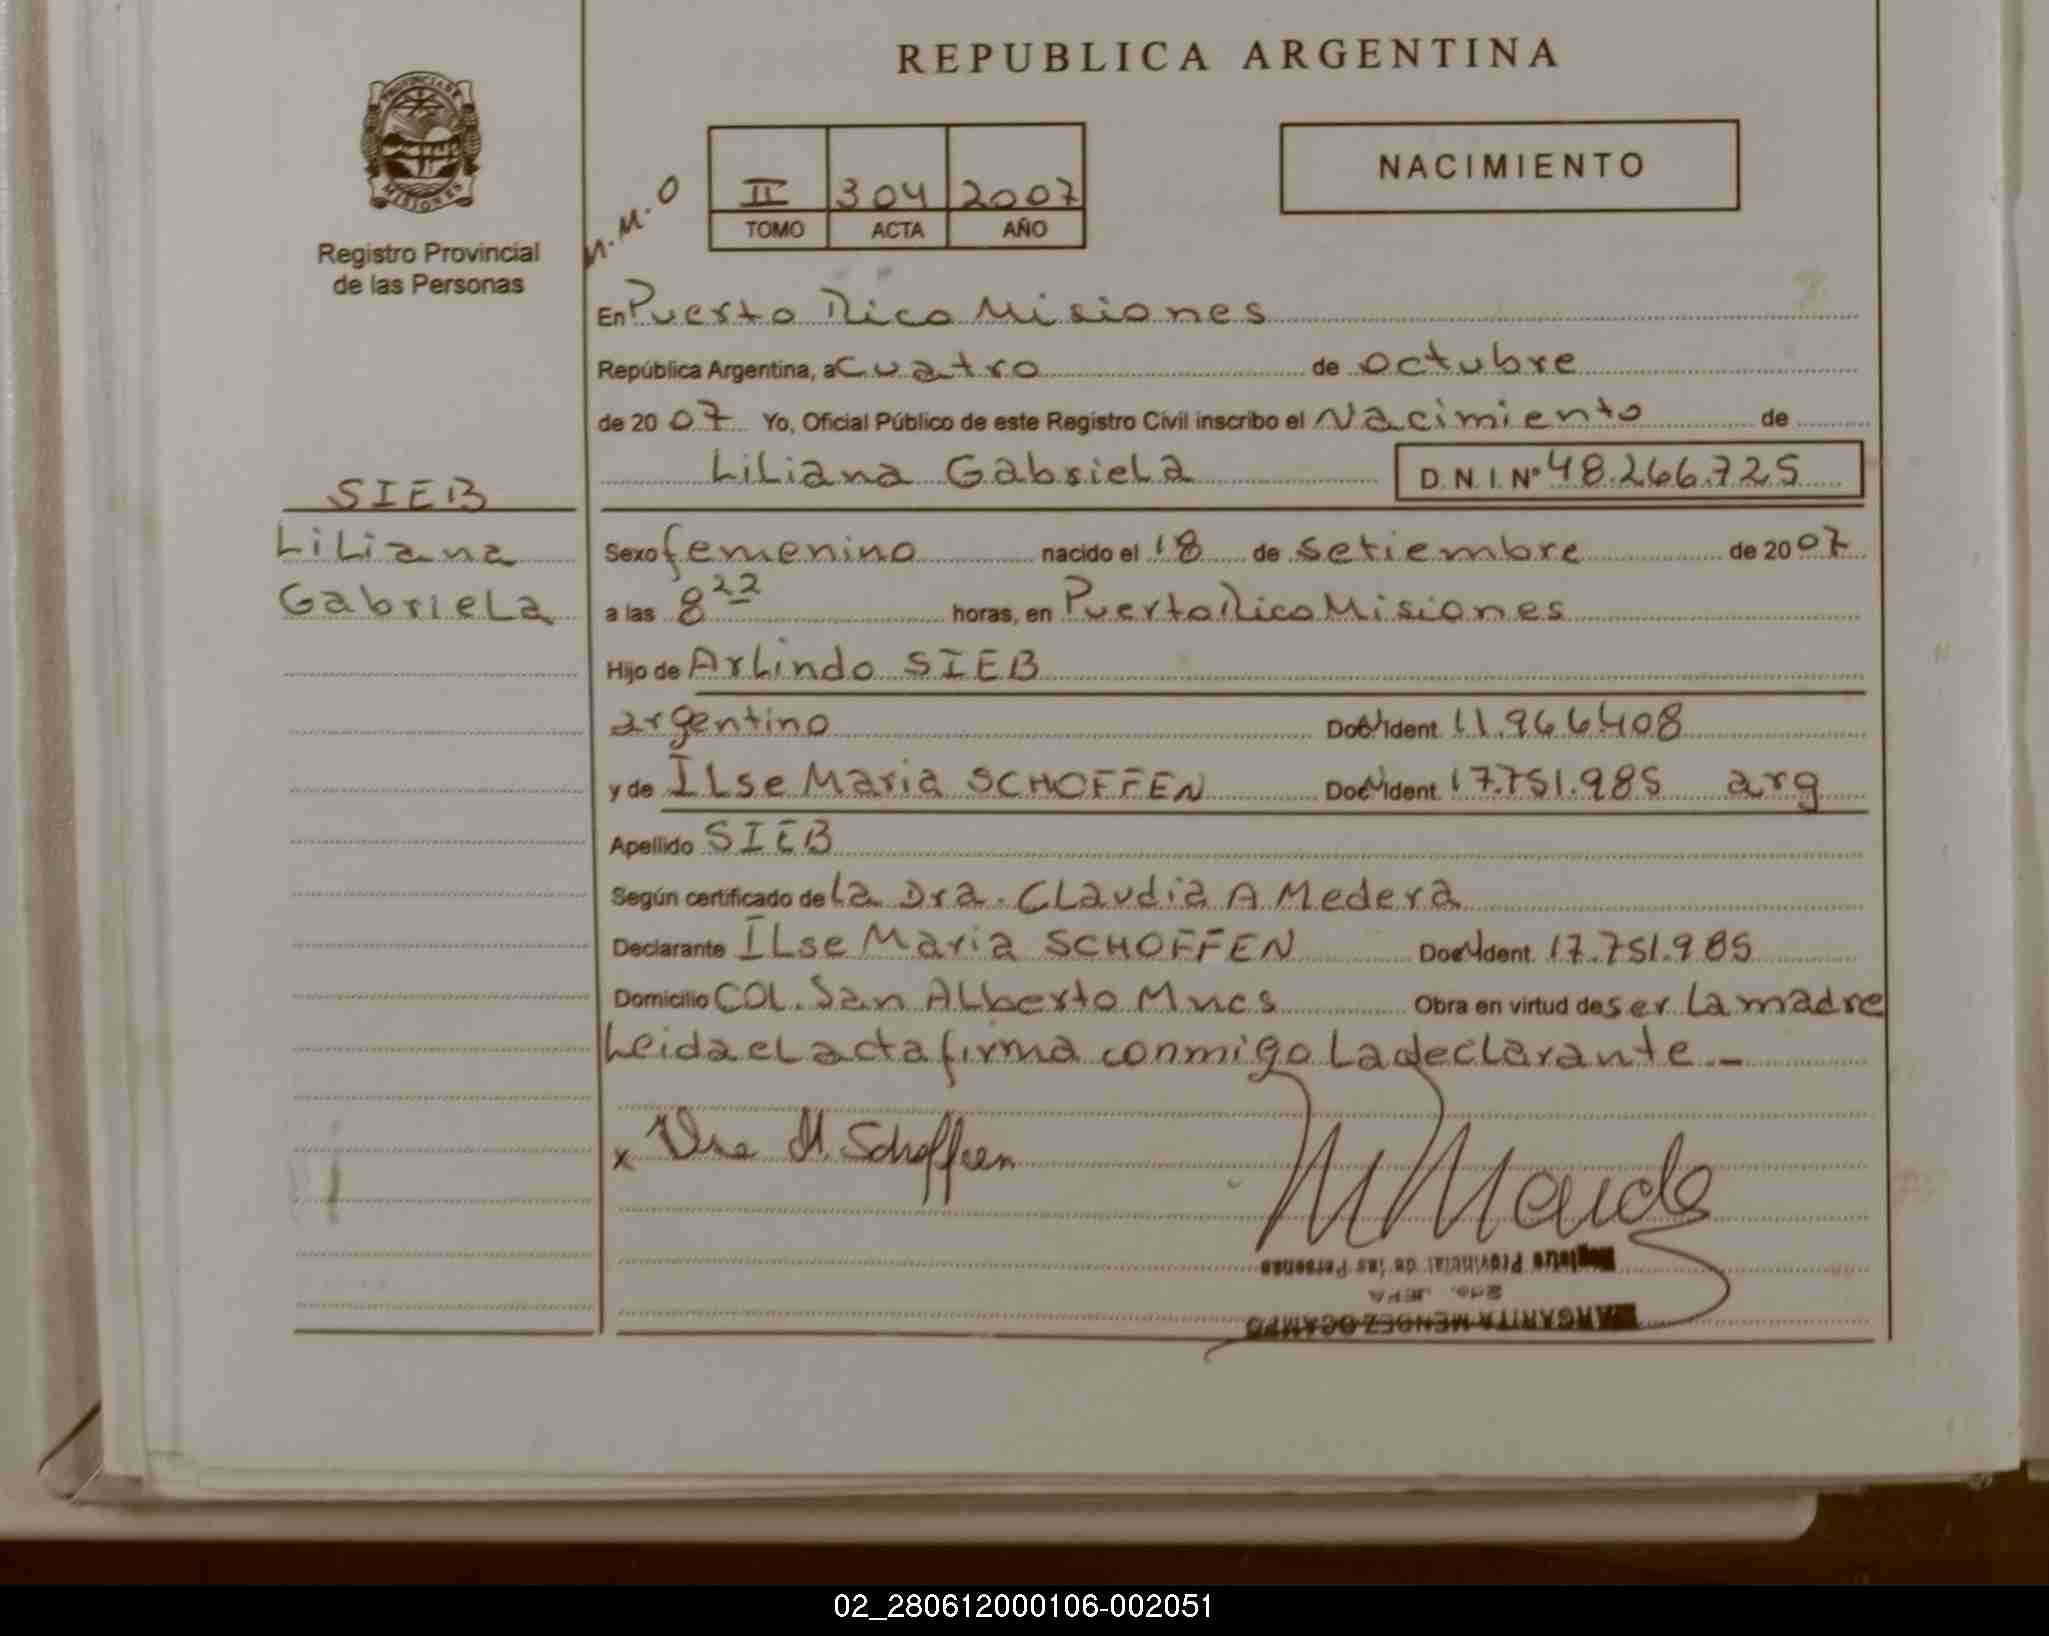 REPUBLICA ARGENTINA
PROVINCIA DE
MISIONES
Registro Provincial
de las Personas
M.M.O
II 304 2007
TOMO ACTA AÑO
NACIMIENTO
En Puerto Rico Misiones
República Argentina, a cuatro de octubre
de 2007 Yo, Oficial Público de este Registro Civil inscribo el Nacimiento de
Liliana Gabriela D.N.I. Nº 48.266.725
SIEB
Liliana
Gabriela
Sexo femenino nacido el 18 de setiembre de 2007
a las 8 22 horas, en Puerto Rico Misiones
Hijo de Arlindo SIEB
argentino Doc. Ident. 11.966408
y de Ilse Maria SCHOFFEN Doc. Ident. 17.751.985 arg
Apellido SIEB
Según certificado de la Dra. Claudia A Medera
Declarante Ilse Maria SCHOFFEN Doc. Ident. 17.751.985
Domicilio COL. San Alberto Mncs Obra en virtud de ser la madre
Leida el acta firma conmigo la declarante. -
x Ilse M. Schoffen
MARGARITA MENDEZ OCAMPO
2do. JEFA
Registro Provincial de las Personas
02_280612000106-002051